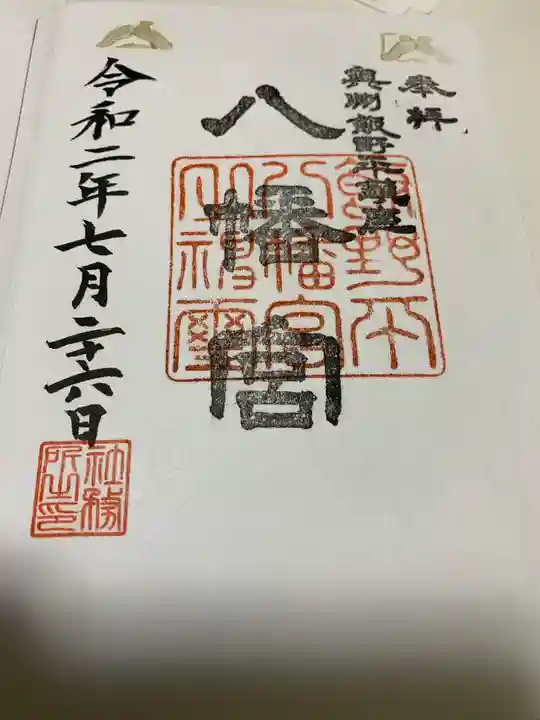 奉拝
奥州飯野平鎮座
八幡宮
飯野平
八幡宮
之神璽
令和二年七月二十六日
社務
所之印